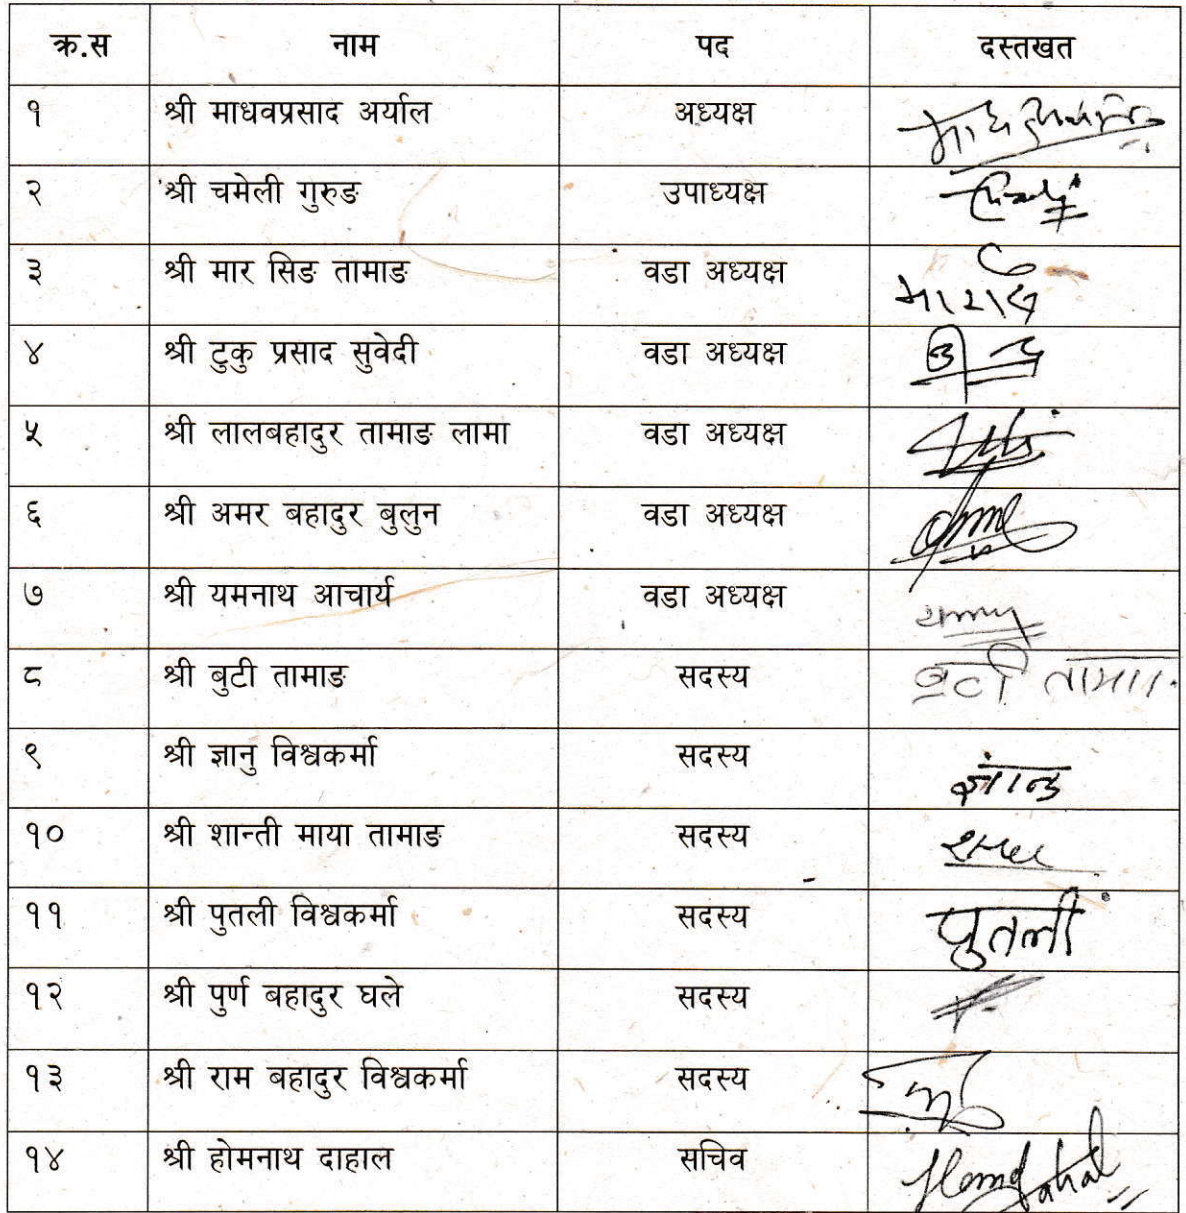 क्र.स नाम पद दस्तखत
१ श्री माधवप्रसाद अर्याल अध्यक्ष
२ श्री चमेली गुरुङ उपाध्यक्ष
३ श्री मार सिङ तामाङ वडा अध्यक्ष
४ श्री टुकु प्रसाद सुवेदी वडा अध्यक्ष
५ श्री लालबहादुर तामाङ लामा वडा अध्यक्ष
६ श्री अमर बहादुर बुलुन वडा अध्यक्ष
७ श्री यमनाथ आचार्य वडा अध्यक्ष
८ श्री बुटी तामाङ सदस्य बुटी
९ श्री ज्ञानु विश्वकर्मा सदस्य
१० श्री शान्ती माया तामाङ सदस्य
११ श्री पुतली विश्वकर्मा सदस्य पुतली
१२ श्री पुर्ण बहादुर घले सदस्य
१३ श्री राम बहादुर विश्वकर्मा सदस्य
१४ श्री होमनाथ दाहाल सचिव